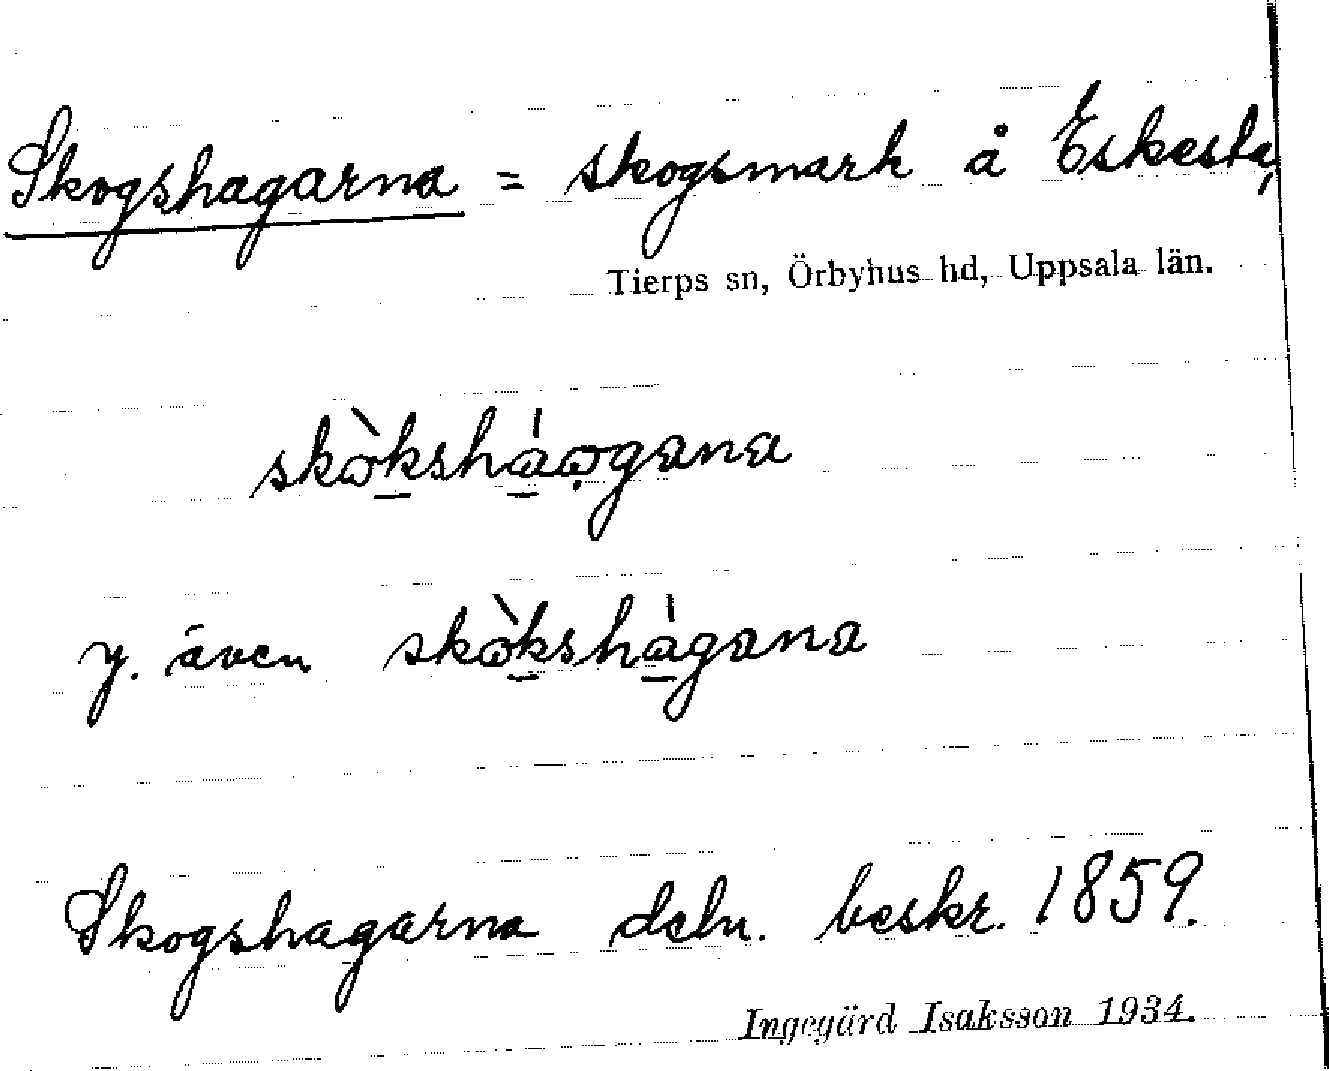 Skogshagarna = skogsmark å Eskesta,
Tierps sn, Örbyhus hd, Uppsala län.
skòkshágana
y. även skòkshágana
Skogshagarna deln. beskr. 1859.
Ingegärd Isaksson 1934.